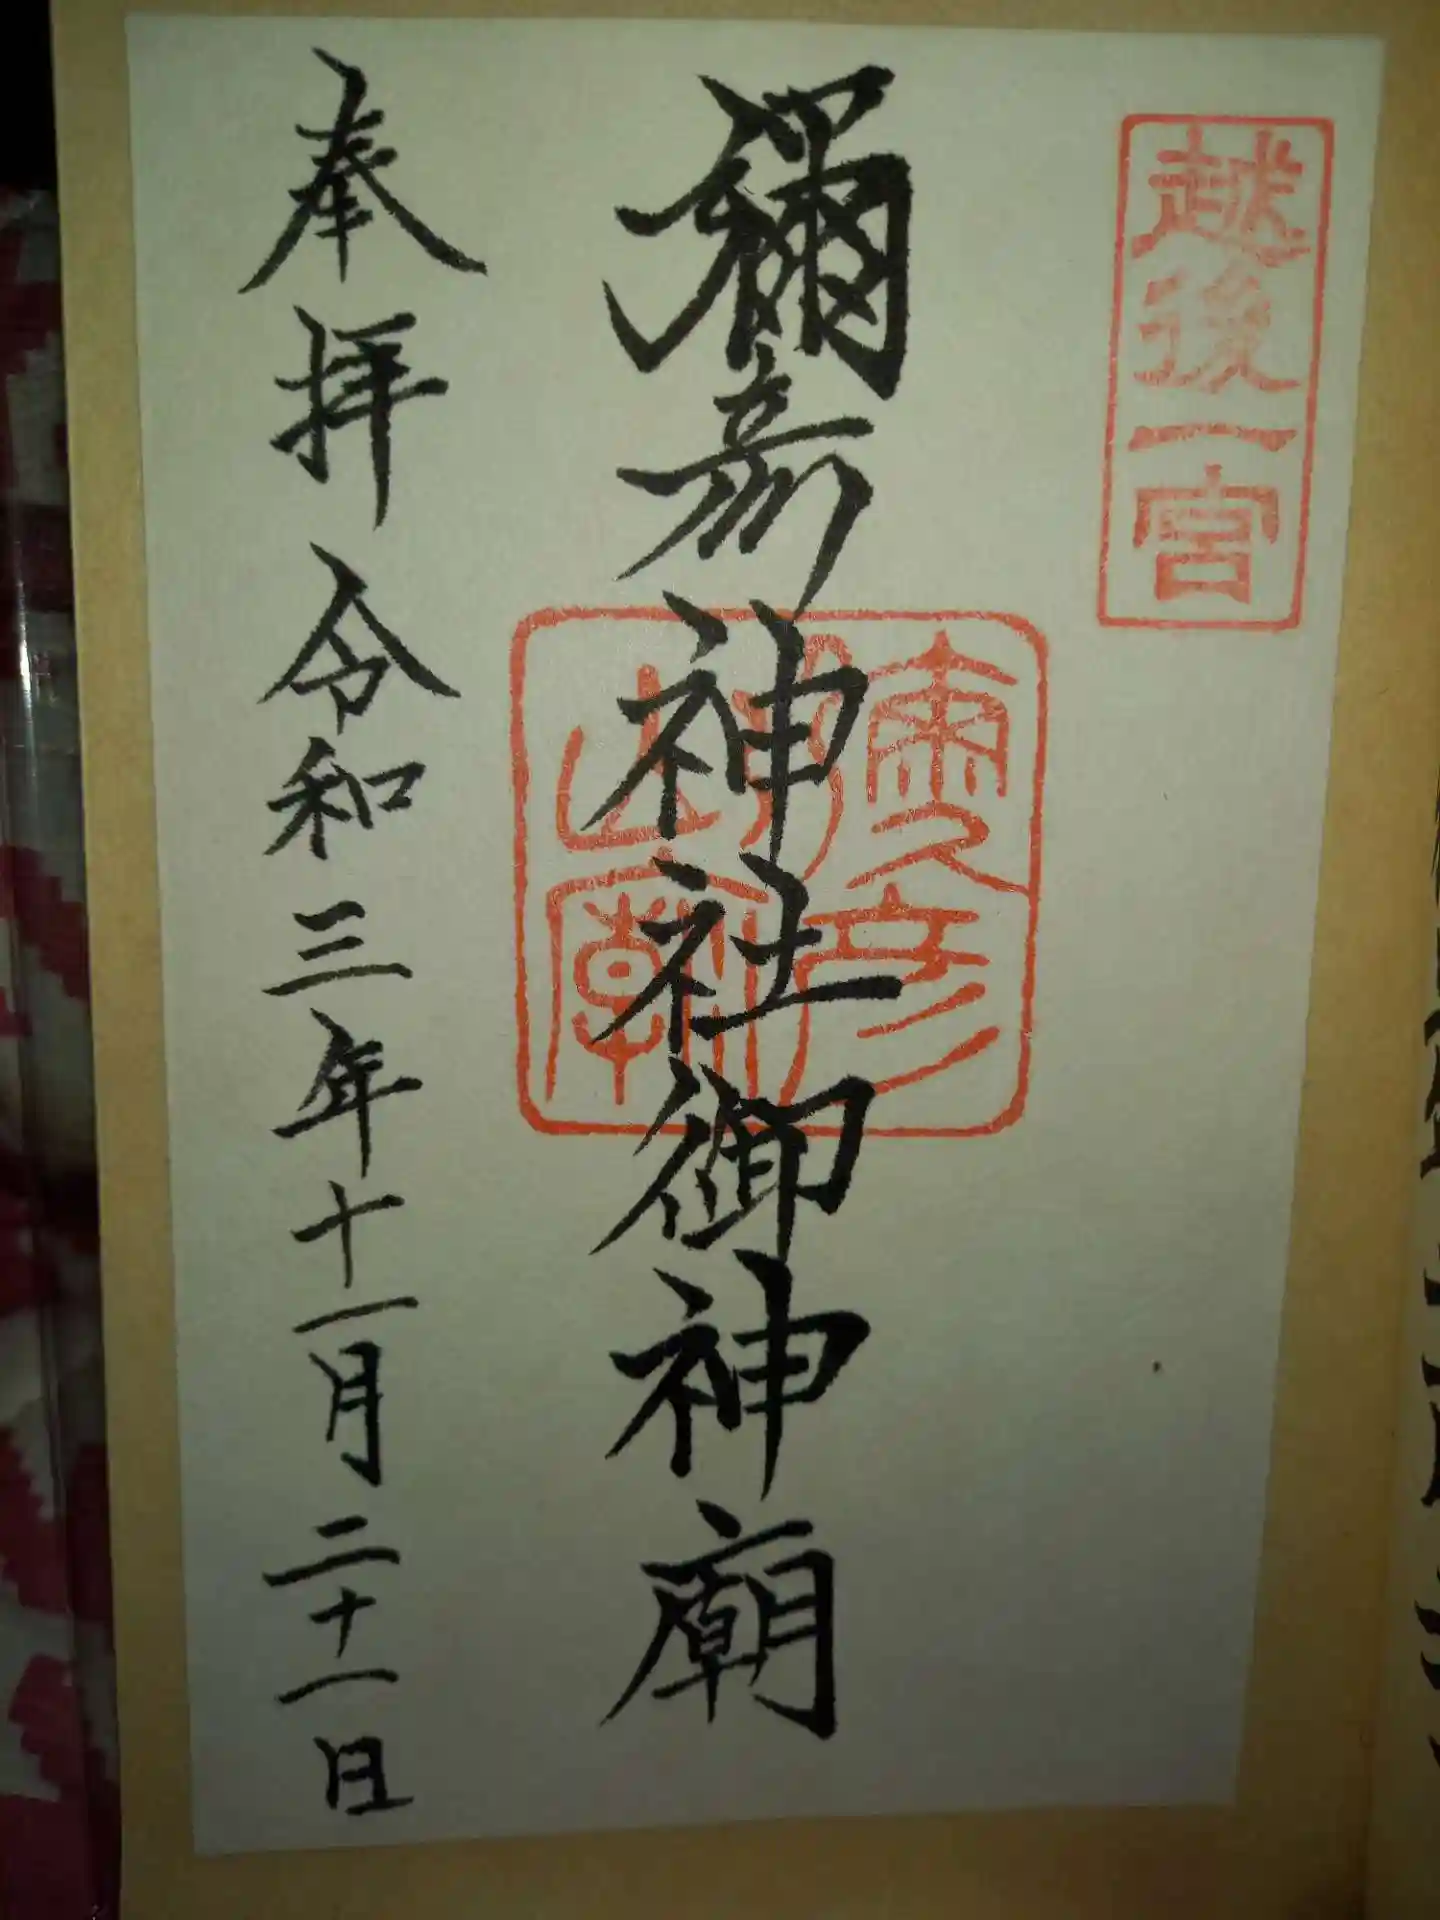 越後一宮
彌彦神社御神廟
奉拝 令和三年十一月二十一日